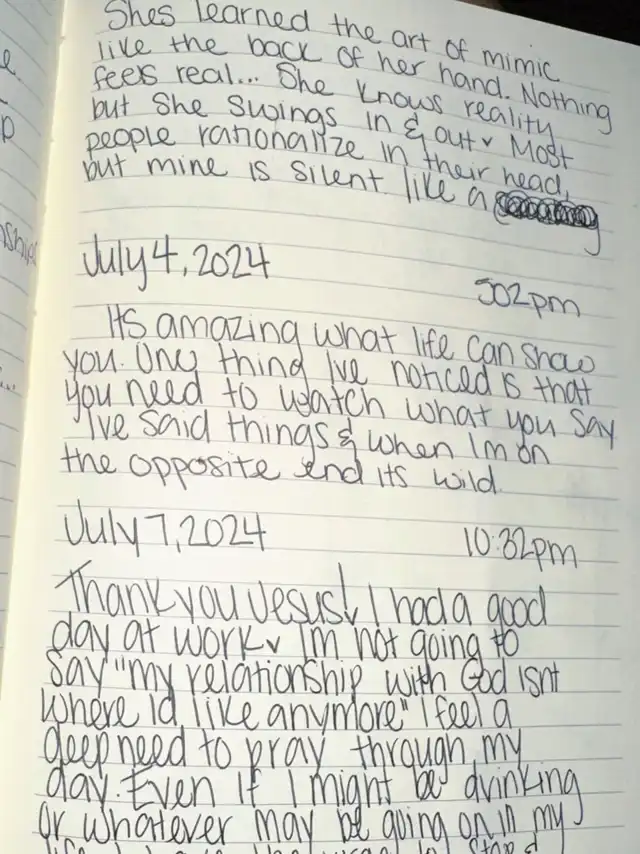 Shes learned the art of mimic
like the back of her hand. Nothing
feels real... She knows reality
but she swings in & out. Most
people rationalize in their head,
but mine is silent like a
July 4, 2024
502pm
Its amazing what life can show
you. One thing Ive noticed is that
you need to watch what you say
Ive said things & when Im on
the opposite end its wild.
July 7, 2024
10:32pm
Thank you Jesus! I had a good
day at work. Im not going to
say "my relationship with God isnt
where Id like anymore" I feel a
deep need to pray through my
day. Even if I might be drinking
or whatever may be going on in my